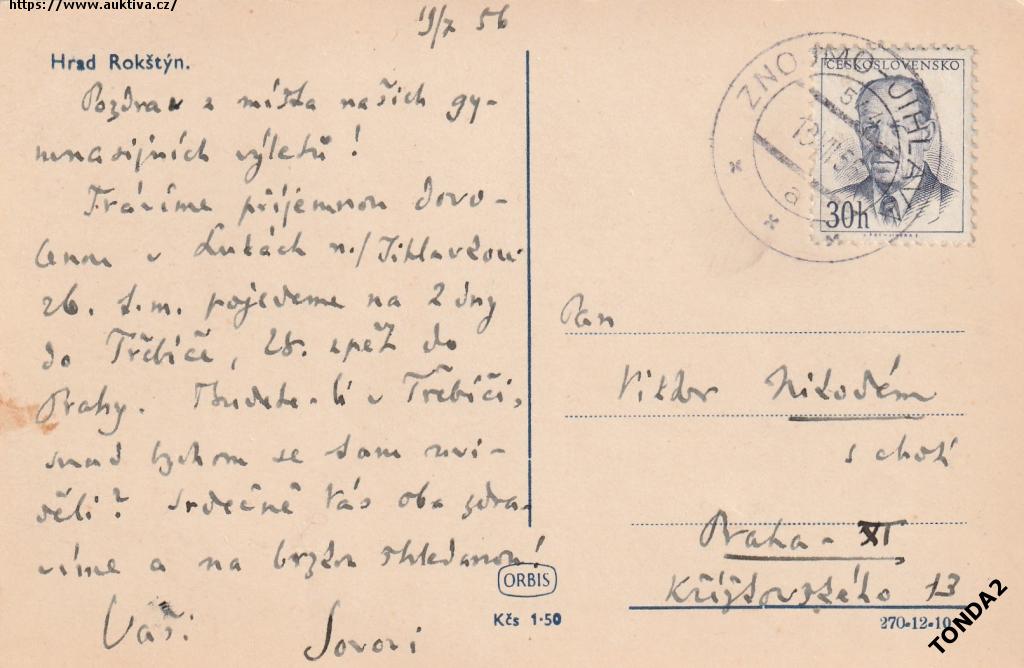 https://www.auktiva.cz/
19/7 56
Hrad Rokštýn.
Pozdrav z místa našich gy-
mnasijních výletů!
Trávíme příjemnou dovo-
lenou v Lukách n./Jihlavkou
26. t.m. pojedeme na 2 dny
do Třebíče, 28. zpět do
Prahy. Budete-li v Třebíči,
snad bychom se tam uvi-
děli? Srdečně Vás oba zdra-
víme a na brzkou shledanou!
Vaši
ZNOJMO-JIHLAVA
a
ČESKOSLOVENSKO
30h
Pan
Viktor Nikodém
s chotí
Praha - XII
Křížkovského 13
ORBIS
Kčs 1·50
270-12-10
TONDA2